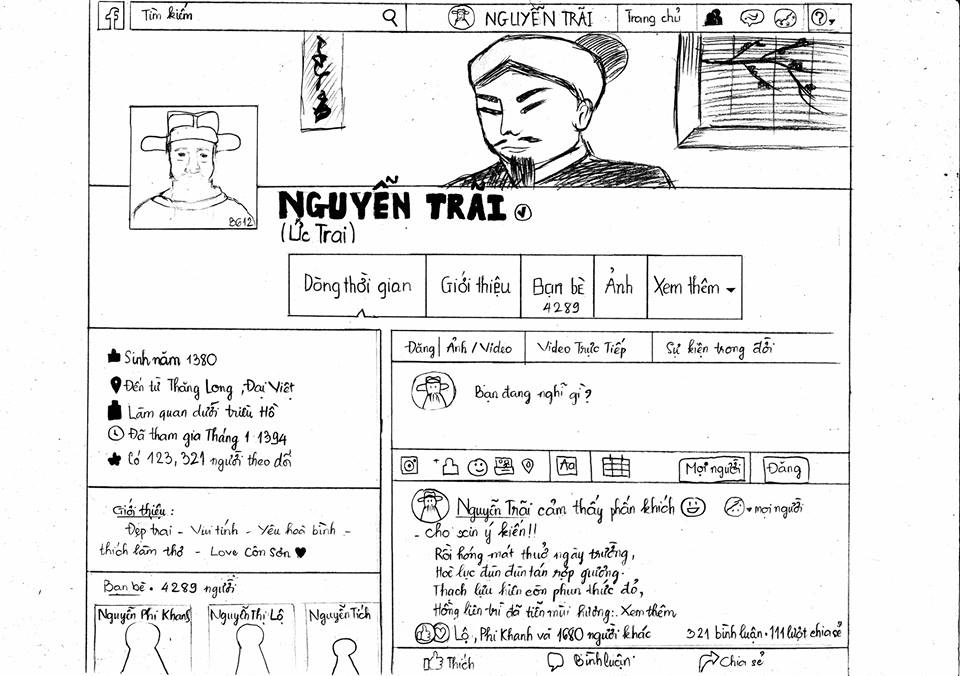 f Tìm kiếm NGUYỄN TRÃI Trang chủ ?
NGUYỄN TRÃI
(Ức Trai)
BG12
Dòng thời gian Giới thiệu Bạn bè 4289 Ảnh Xem thêm
Sinh năm 1380
Đến từ Thăng Long, Đại Việt
Làm quan dưới triều Hồ
Đã tham gia Tháng 1 1394
Có 123,321 người theo dõi
Giới thiệu :
Đẹp trai - Vui tính - Yêu hoà bình -
thích làm thơ - Love Côn Sơn
Bạn bè • 4289 người
Nguyễn Phi Khanh Nguyễn Thị Lộ Nguyễn Tích
Đăng Ảnh / Video Video Trực Tiếp Sự kiện trong đời
Bạn đang nghĩ gì?
Aa Mọi người Đăng
Nguyễn Trãi cảm thấy phấn khích mọi người
- cho xin ý kiến!!
Rồi hóng mát thuở ngày trường,
Hoè lục đùn đùn tán rợp giương.
Thạch lựu hiên còn phun thức đỏ,
Hồng liên trì đã tiễn mùi hương... Xem thêm
Lộ, Phi Khanh và 1680 người khác 321 bình luận • 111 lượt chia sẻ
Thích Bình luận Chia sẻ